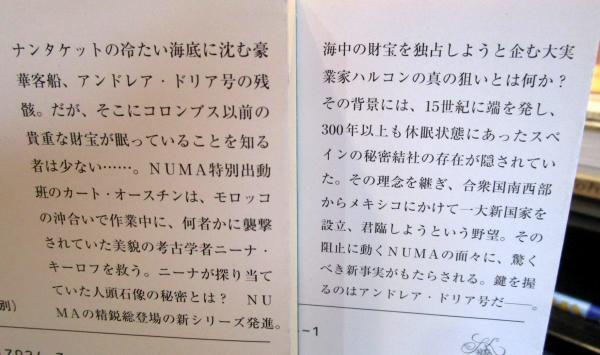 ナンタケットの冷たい海底に沈む豪
華客船、アンドレア・ドリア号の残
骸。だが、そこにコロンブス以前の
貴重な財宝が眠っていることを知る
者は少ない……。NUMA特別出動
班のカート・オースチンは、モロッコ
の沖合いで作業中に、何者かに襲撃
されていた美貌の考古学者ニーナ・
キーロフを救う。ニーナが探り当て
ていた人頭石像の秘密とは? NU
MAの精鋭総登場の新シリーズ発進。
別)
海中の財宝を独占しようと企む大実
業家ハルコンの真の狙いとは何か?
その背景には、15世紀に端を発し、
300年以上も休眠状態にあったスペ
インの秘密結社の存在が隠されてい
た。その理念を継ぎ、合衆国南西部
からメキシコにかけて一大新国家を
設立、君臨しようという野望。その
阻止に動くNUMAの面々に、驚く
べき新事実がもたらされる。鍵を握
るのはアンドレア・ドリア号だ──。
-1